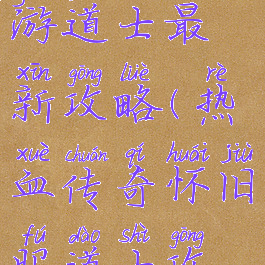 游道士最
xīn gōng lüè rè
新攻略(热
xuè chuán qí huái jiù
血传奇怀旧
fú dào shì gōng
服道士攻